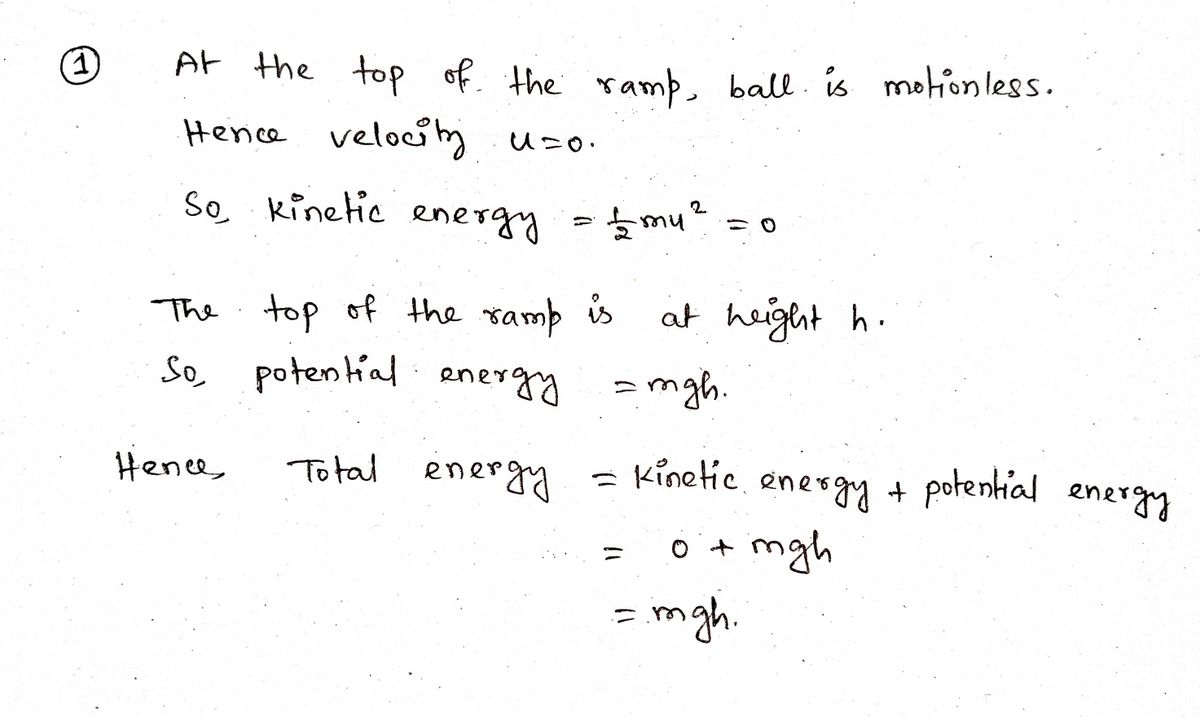 ① At the top of the ramp, ball is motionless.
Hence velocity u=0.
So, kinetic energy = ½mu² = 0
The top of the ramp is at height h.
So, potential energy = mgh.
Hence, Total energy = kinetic energy + potential energy
= 0 + mgh
= mgh.